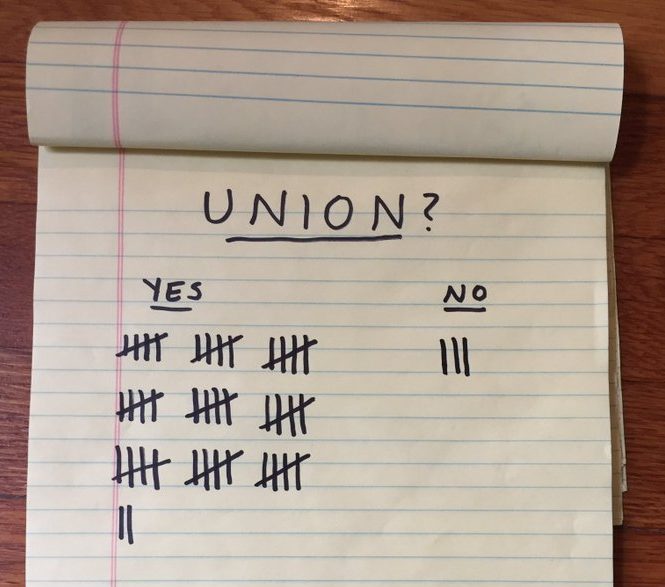 UNION?
YES NO
𝍸 𝍸 𝍸 |||
𝍸 𝍸 𝍸
𝍸 𝍸 𝍸
||